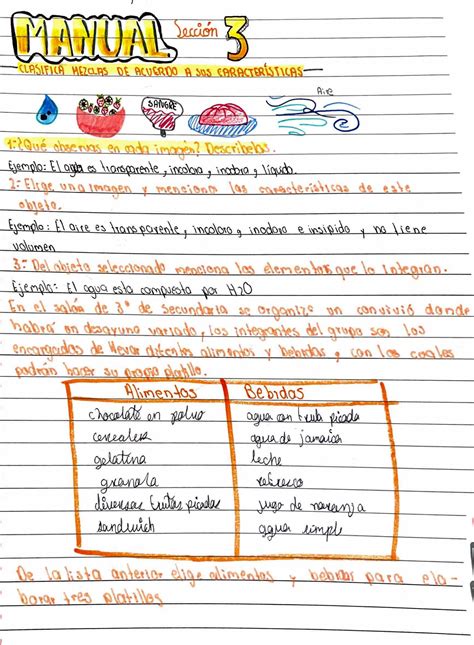 MANUAL Sección 3
CLASIFICA MEZCLAS DE ACUERDO A SUS CARACTERÍSTICAS
Aire
SANGRE
1-¿Qué observas en cada imagen? Descríbelos.
Ejemplo: El agua es transparente, incoloro, inodora y líquido.
2.- Elige una imagen y menciona las características de este
objeto.
Ejemplo: El aire es transparente, incoloro, inodoro e insipido y no tiene
volumen
3.- Del objeto seleccionado menciona los elementos que lo integran.
Ejemplo: El agua esta compuesta por H2O
En el salón de 3° de secundaria se organizo un convivió donde
habrá un desayuno variado, los integrantes del grupo son los
encargados de llevar diferentes alimentos y bebidas, con los cuales
podrán hacer su propio platillo.
Alimentos Bebidas
chocolate en polvo agua con fruta picada
cereales agua de jamaica
gelatina leche
granola refresco
diversas frutas picadas jugo de naranja
sandwich agua simple
De la lista anterior elige alimentos y bebidas para ela-
borar tres platillos